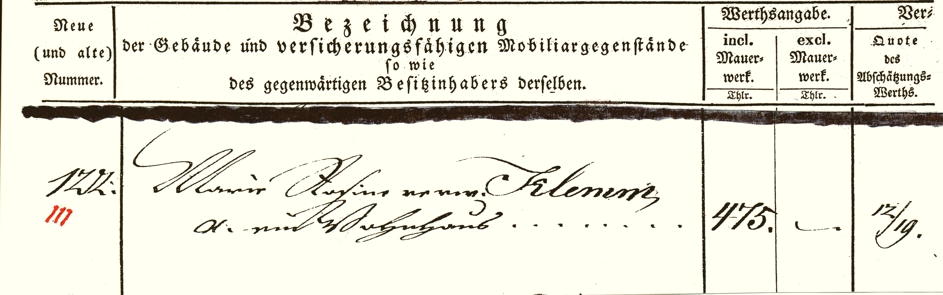 Neue
(und alte)
Nummer.
Bezeichnung
der Gebäude und versicherungsfähigen Mobiliargegenstände
so wie
des gegenwärtigen Besitzinhabers derselben.
Werthsangabe.
incl.
Mauer-
werk.
Thlr.
excl.
Mauer-
werk.
Thlr.
Ver-
Quote
des
Abschätzungs-
Werths.
Marie Rosine verw. Klemm,
a. ein Wohnhaus . . . . . . . .
475.
—
12/19.